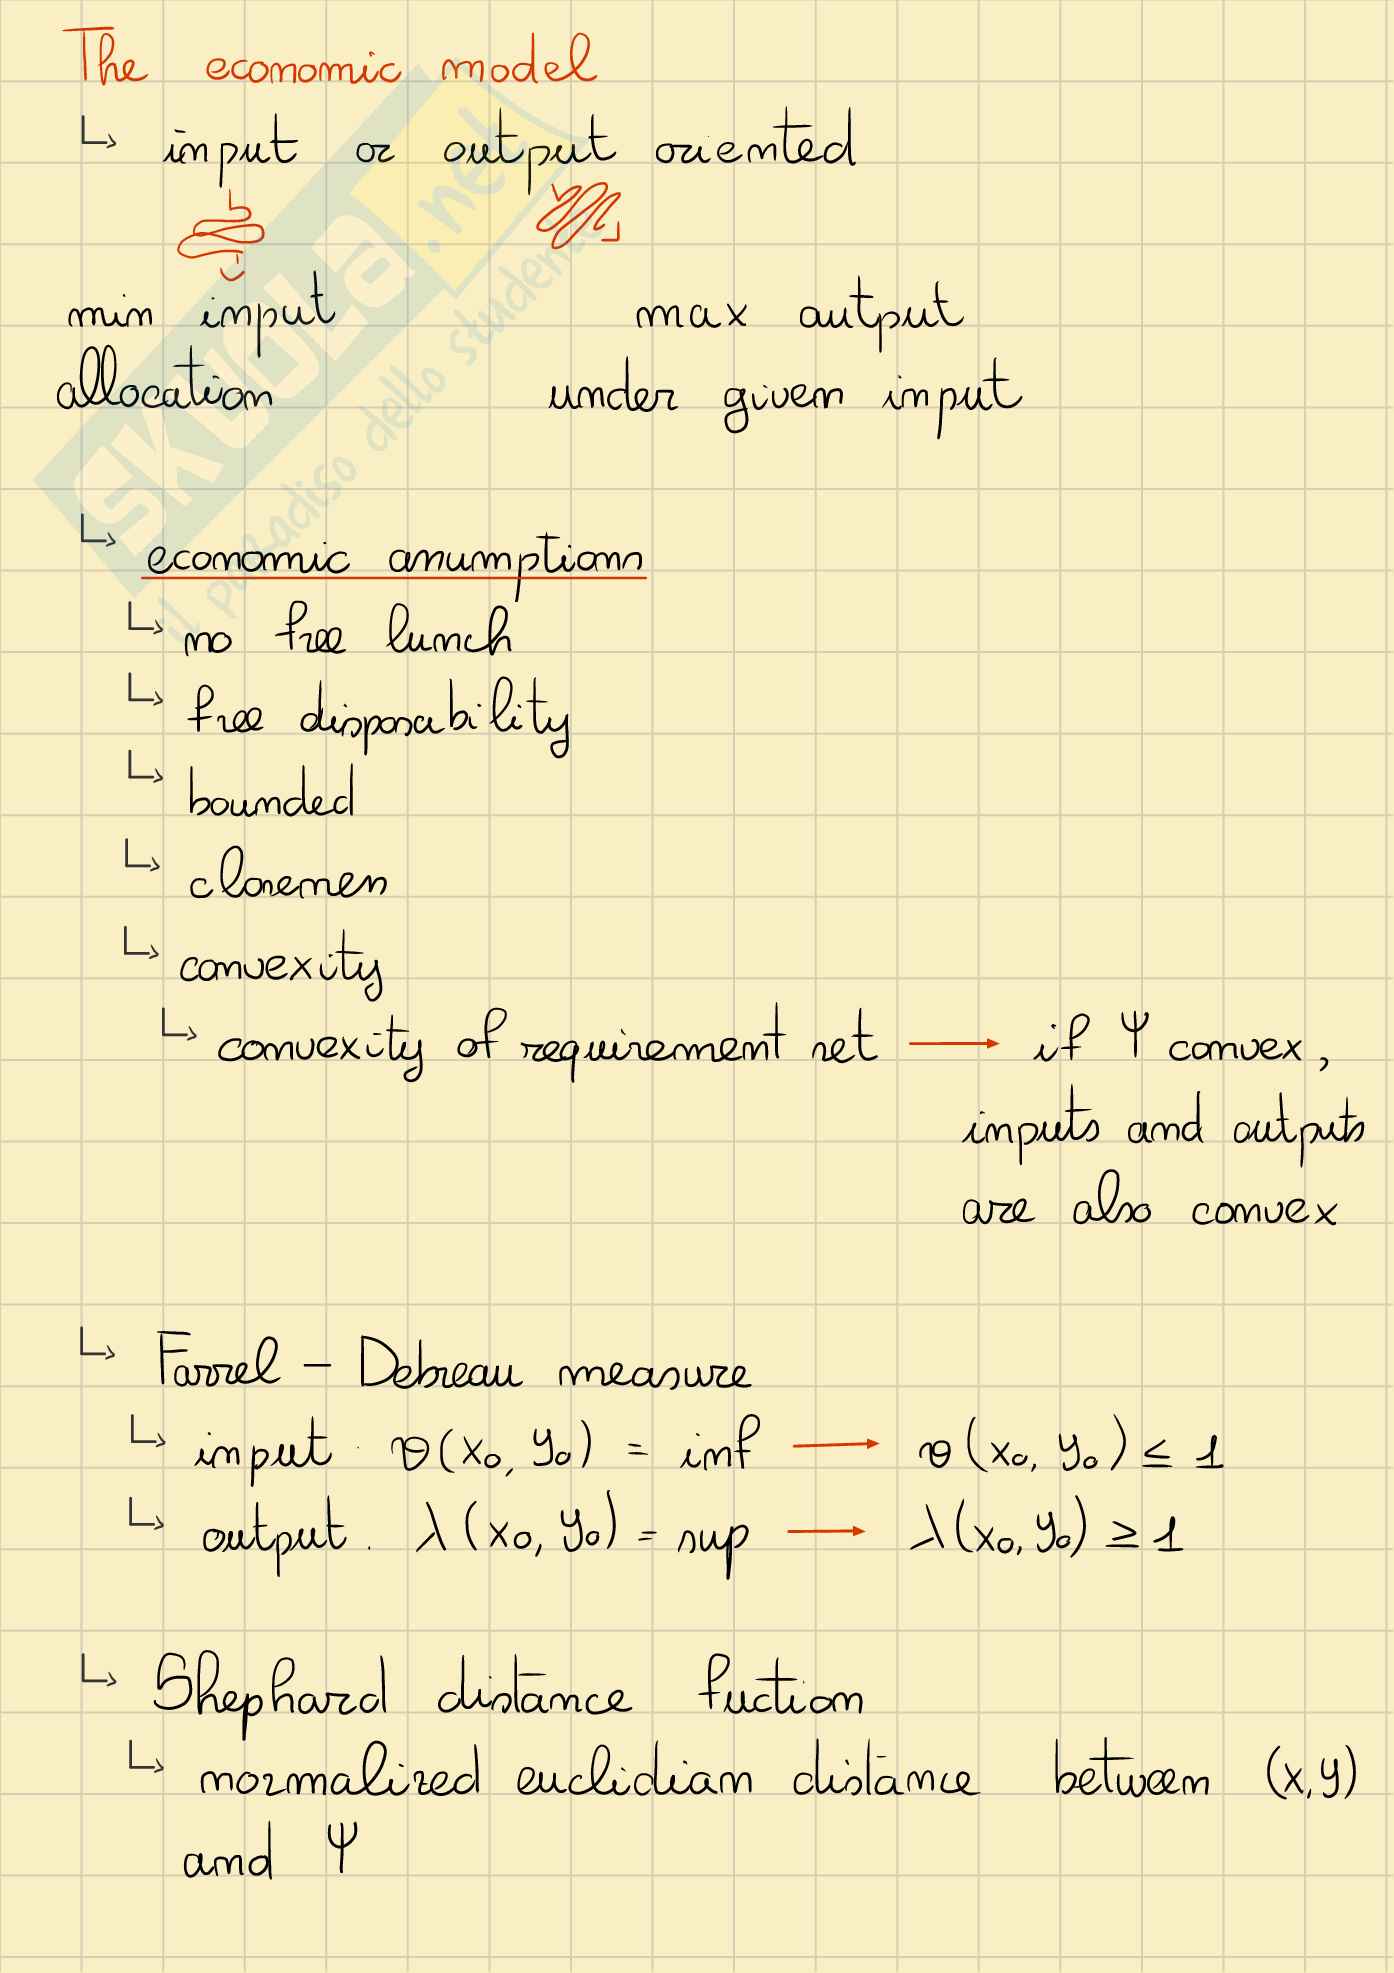 The economic model
↳ input or output oriented
min input max output
allocation under given input
↳ economic assumptions
↳ no free lunch
↳ free disposability
↳ bounded
↳ closeness
↳ convexity
↳ convexity of requirement set → if Ψ convex,
inputs and outputs
are also convex
↳ Farrel – Debreau measure
↳ input. θ(x₀, y₀) = inf → θ(x₀, y₀) ≤ 1
↳ output. λ(x₀, y₀) = sup → λ(x₀, y₀) ≥ 1
↳ Shephard distance fuction
↳ normalized euclidian distance between (x,y)
and Ψ
SKUOLA.net
il paradiso dello studente